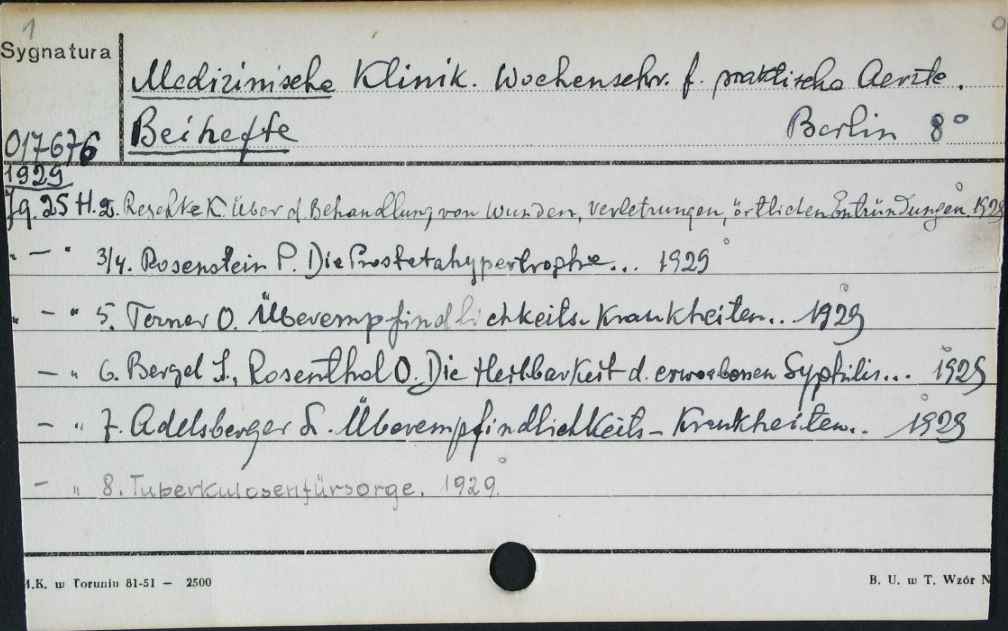 1
Sygnatura
Medizinische Klinik. Wochenschr. f. praktische Aerzte.
Beihefte Berlin 8°
017676
1929
Jg. 25 H. 2. Reschke K. Über d. Behandlung von Wunden, Verletzungen, örtlichen Entzündungen. 1929
" — " 3/4. Rosenstein P. Die Prostatahypertrophie... 1929
" - " 5. Terner O. Überempfindlichkeits-Krankheiten.. 1929
- " 6. Bergel S., Rosenthal O. Die Heilbarkeit d. erworbenen Syphilis... 1929
- " 7. Adelsberger L. Überempfindlichkeits-Krankheiten.. 1929
- " 8. Tuberkulosenfürsorge. 1929.
M.K. w Toruniu 81-51 — 2500 B. U. w T. Wzór N